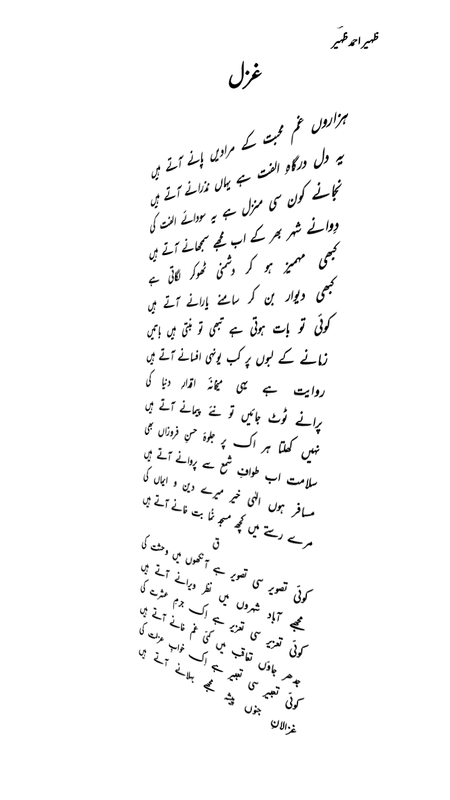 ظہیر احمد ظہیر
غزل
ہزاروں غم محبت کے مرادیں پانے آتے ہیں
یہ دل درگاہِ الفت ہے یہاں نذرانے آتے ہیں
نجانے کون سی منزل ہے یہ سودائے الفت کی
دِوانے شہر بھر کے اب مجھے سمجھانے آتے ہیں
کبھی مہمیز ہو کر دشمنی ٹھوکر لگاتی ہے
کبھی دیوار بن کر سامنے یارانے آتے ہیں
کوئی تو بات ہوتی ہے تبھی تو بنتی ہیں باتیں
زمانے کے لبوں پر کب یونہی افسانے آتے ہیں
روایت ہے یہی میخانۂ اقدارِ دنیا کی
پرانے ٹوٹ جائیں تو نئے پیمانے آتے ہیں
نہیں کھلتا ہر اک پر جلوۂ حسنِ فروزاں بھی
سلامت اب طوافِ شمع سے پروانے آتے ہیں
مسافر ہوں الٰہی خیر میرے دین و ایماں کی
مرے رستے میں کچھ مسجد نما بت خانے آتے ہیں
ق
کوئی تصویر سی تصویر ہے آنکھوں میں وحشت کی
مجھے آباد شہروں میں نظر ویرانے آتے ہیں
کوئی تعزیر سی تعزیر ہے اک جرمِ عشرت کی
جدھر جاؤں تعاقب میں کئی غم خانے آتے ہیں
کوئی تعبیر سی تعبیر ہے اک خوابِ عزلت کی
غزالانِ جنوں پیشہ مجھے بہلانے آتے ہیں